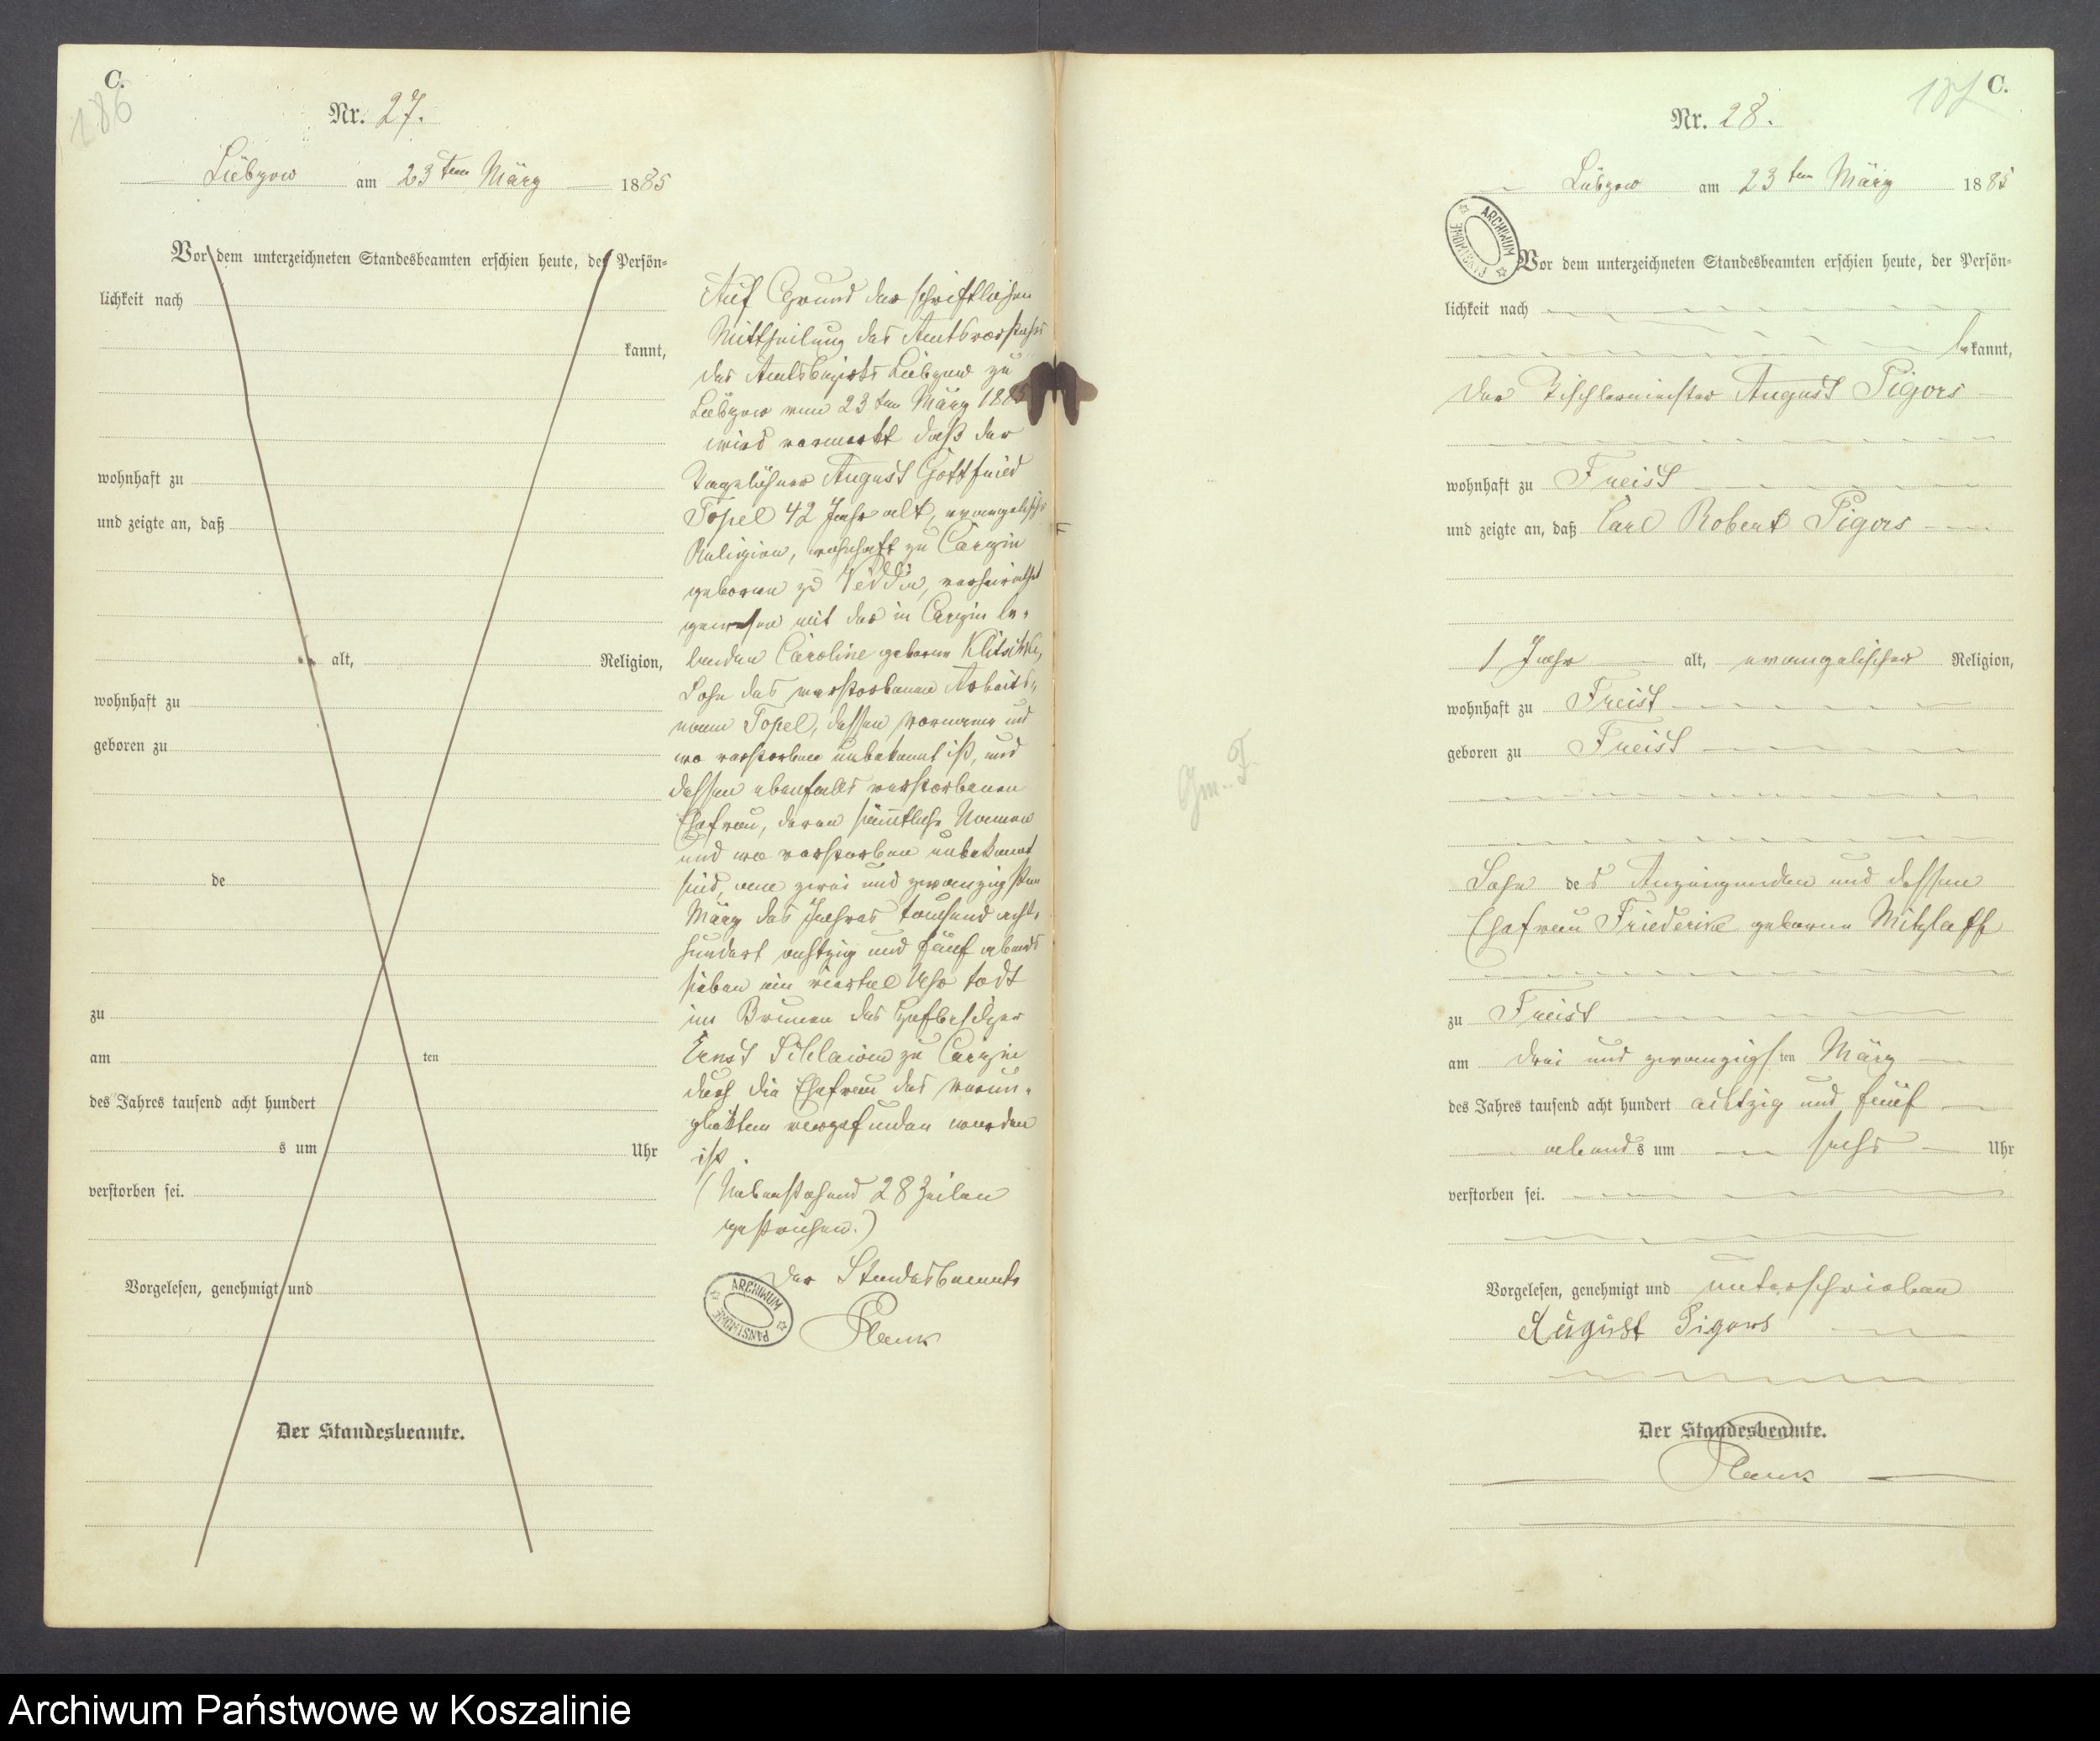 C.
186
Nr. 27.
Lübzow am 23ten März 1885
Vor dem unterzeichneten Standesbeamten erschien heute, der Persön-
lichkeit nach
kannt,
wohnhaft zu
und zeigte an, daß
alt, Religion,
wohnhaft zu
geboren zu
de
zu
am ten
des Jahres tausend acht hundert
s um Uhr
verstorben sei.
Vorgelesen, genehmigt und
Der Standesbeamte.
Auf Grund der schriftlichen
Mittheilung des Amtsvorstehers
des Amtsbezirks Lübzow zu
Lübzow vom 23ten März 1885
wird vermerkt daß der
Tagelöhner August Gottfried
Topel 42 Jahr alt, evangelischer
Religion, wohnhaft zu Carzin
geboren zu Veddin, verheirathet
gewesen mit der in Carzin le-
benden Caroline geborne
Sohn des verstorbenen Arbeits-
mann Topel, dessen Vorname und
wo verstorben unbekannt ist, und
dessen ebenfalls verstorbenen
Ehefrau, deren sämtliche Namen
und wo verstorben unbekannt
sind, am zwei und zwanzigsten
März des Jahres tausend acht-
hundert achtzig und fünf abends
sieben ein viertel Uhr todt
im Brunnen des Hofbesitzer
Ernst zu Carzin
durch die Ehefrau des verun-
glückten vorgefunden worden
ist.
(Nebenstehend 28 Zeilen
gestrichen.)
Der Standesbeamte
Plank
ARCHIWUM PAŃSTWOWE
C.
Nr. 28.
Lübzow am 23ten März 1885
ARCHIWUM PAŃSTWOWE
Vor dem unterzeichneten Standesbeamten erschien heute, der Persön-
lichkeit nach
bekannt,
der Tischlermeister August Pigors
wohnhaft zu Freist
und zeigte an, daß Carl Robert Pigors
1 Jahr alt, evangelischer Religion,
wohnhaft zu Freist
geboren zu Freist
Sohn des Anzeigenden und dessen
Ehefrau Friederike geborne Mitzlaff
zu Freist
am drei und zwanzigsten März
des Jahres tausend acht hundert achtzig und fünf
abends um sechs Uhr
verstorben sei.
Vorgelesen, genehmigt und unterschrieben
August Pigors
Der Standesbeamte.
Plank
Gm. F.
Archiwum Państwowe w Koszalinie